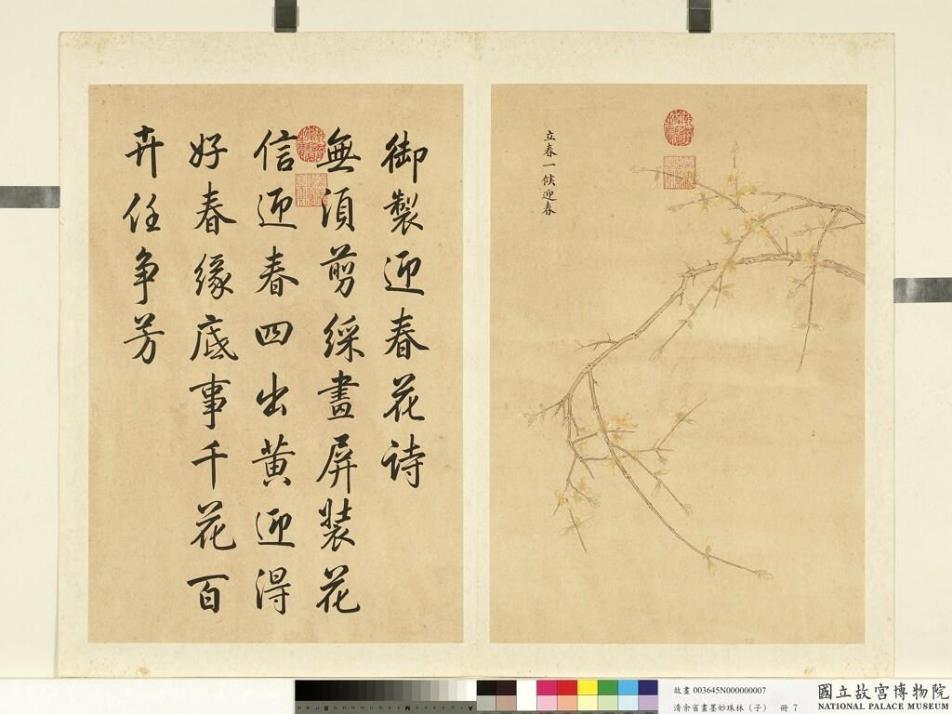 立春一候迎春
御製迎春花詩
無須剪綵畫屏裝花
信迎春四出黄迎得
好春緣底事千花百
卉任争芳
故畫 003645N000000007
清余省畫墨妙珠林（子） 冊 7
國立故宮博物院
NATIONAL PALACE MUSEUM